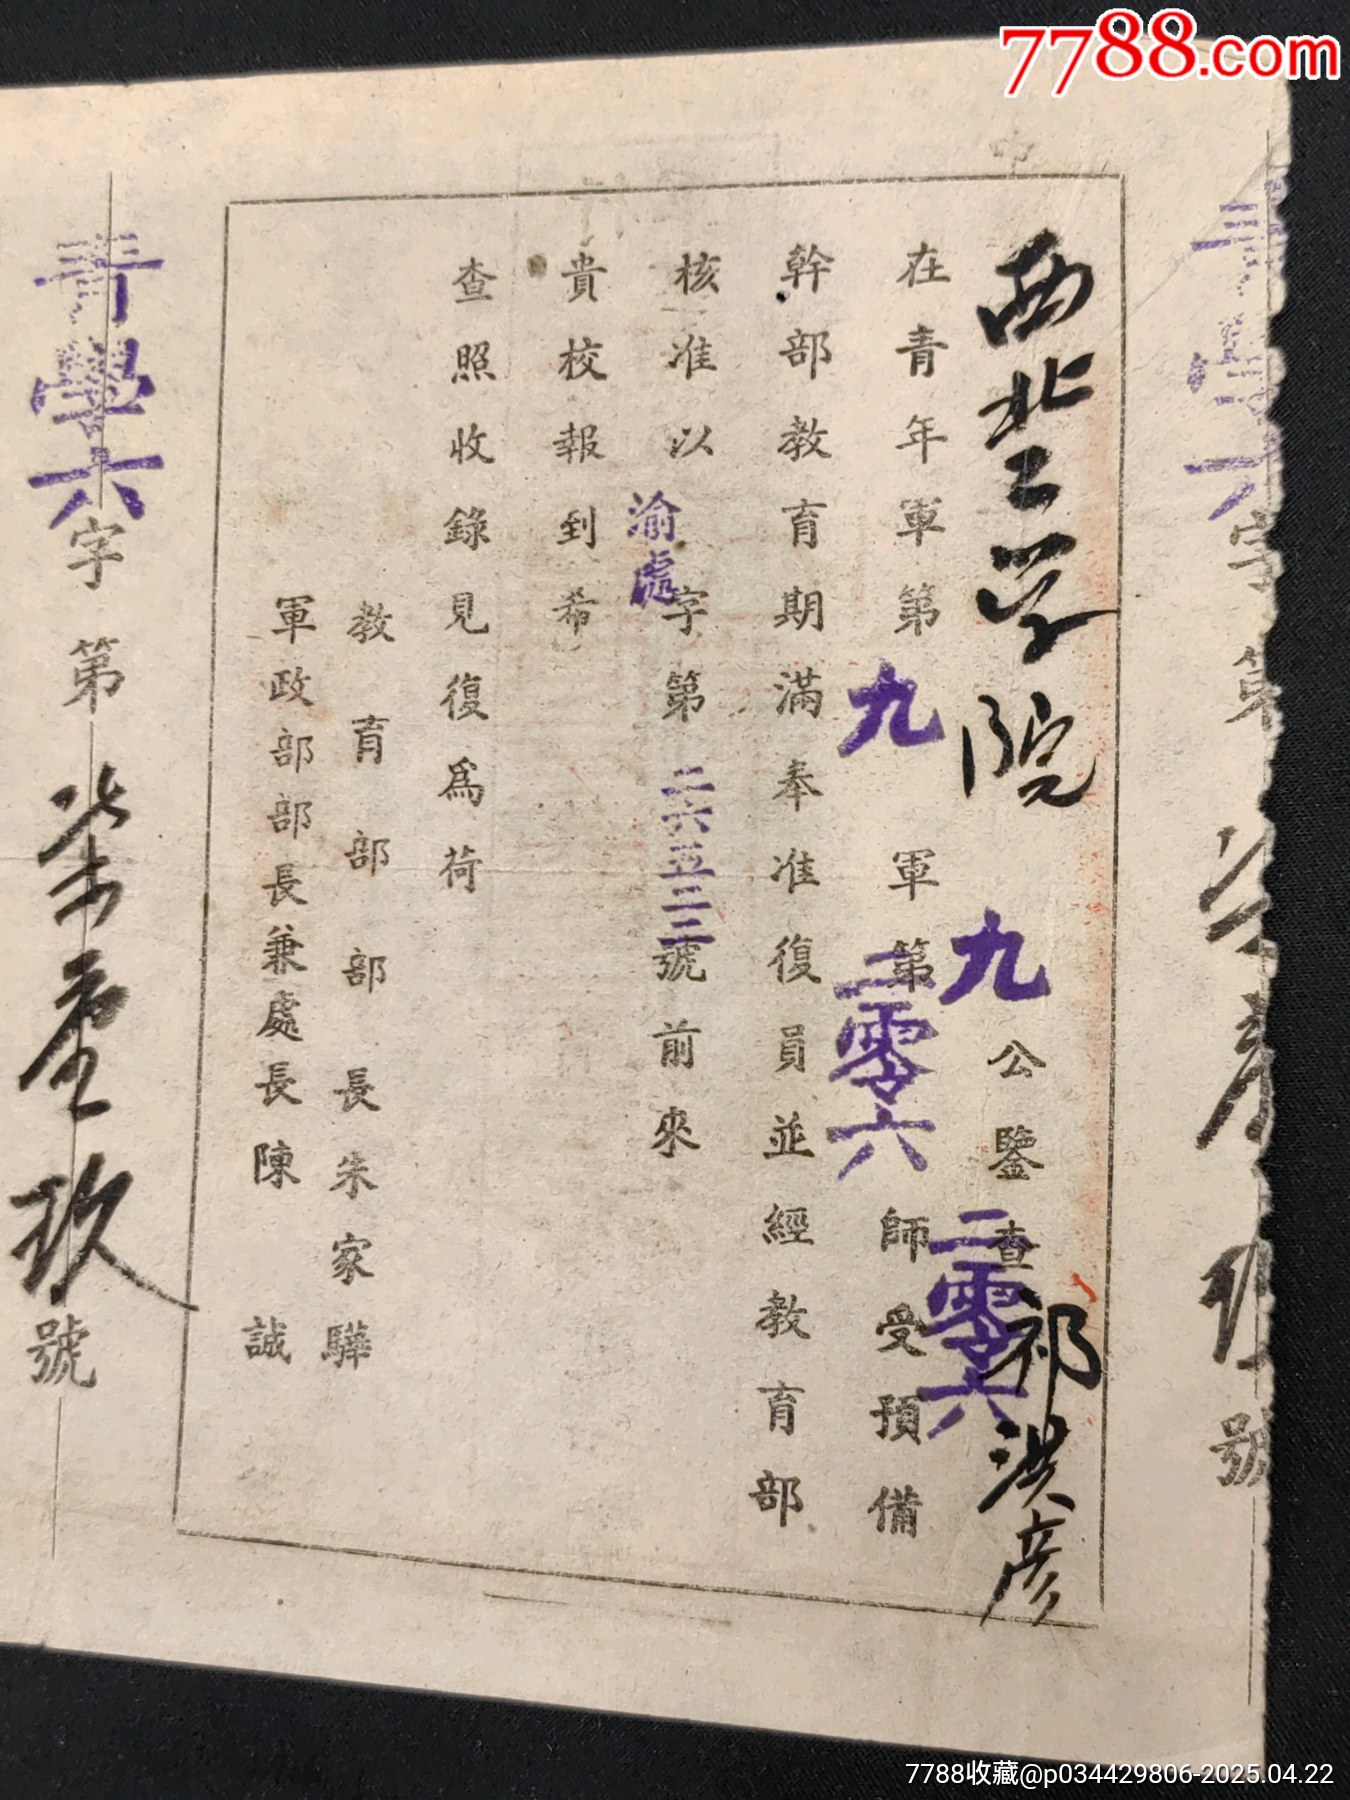 7788.com
西北工学院 九 公鑒查 二零六 祁洪彦
在青年軍第 九 軍第 二零六 師受預備
幹部教育期滿奉准復員並經教育部
核准以 渝處 字第 二六五三二 號前來
貴校報到希
查照收錄見復爲荷
教育部部長朱家驊
軍政部部長兼處長陳 誠
青學六 字第 柒壹玖 號
字第
號
7788收藏@p034429806-2025.04.22